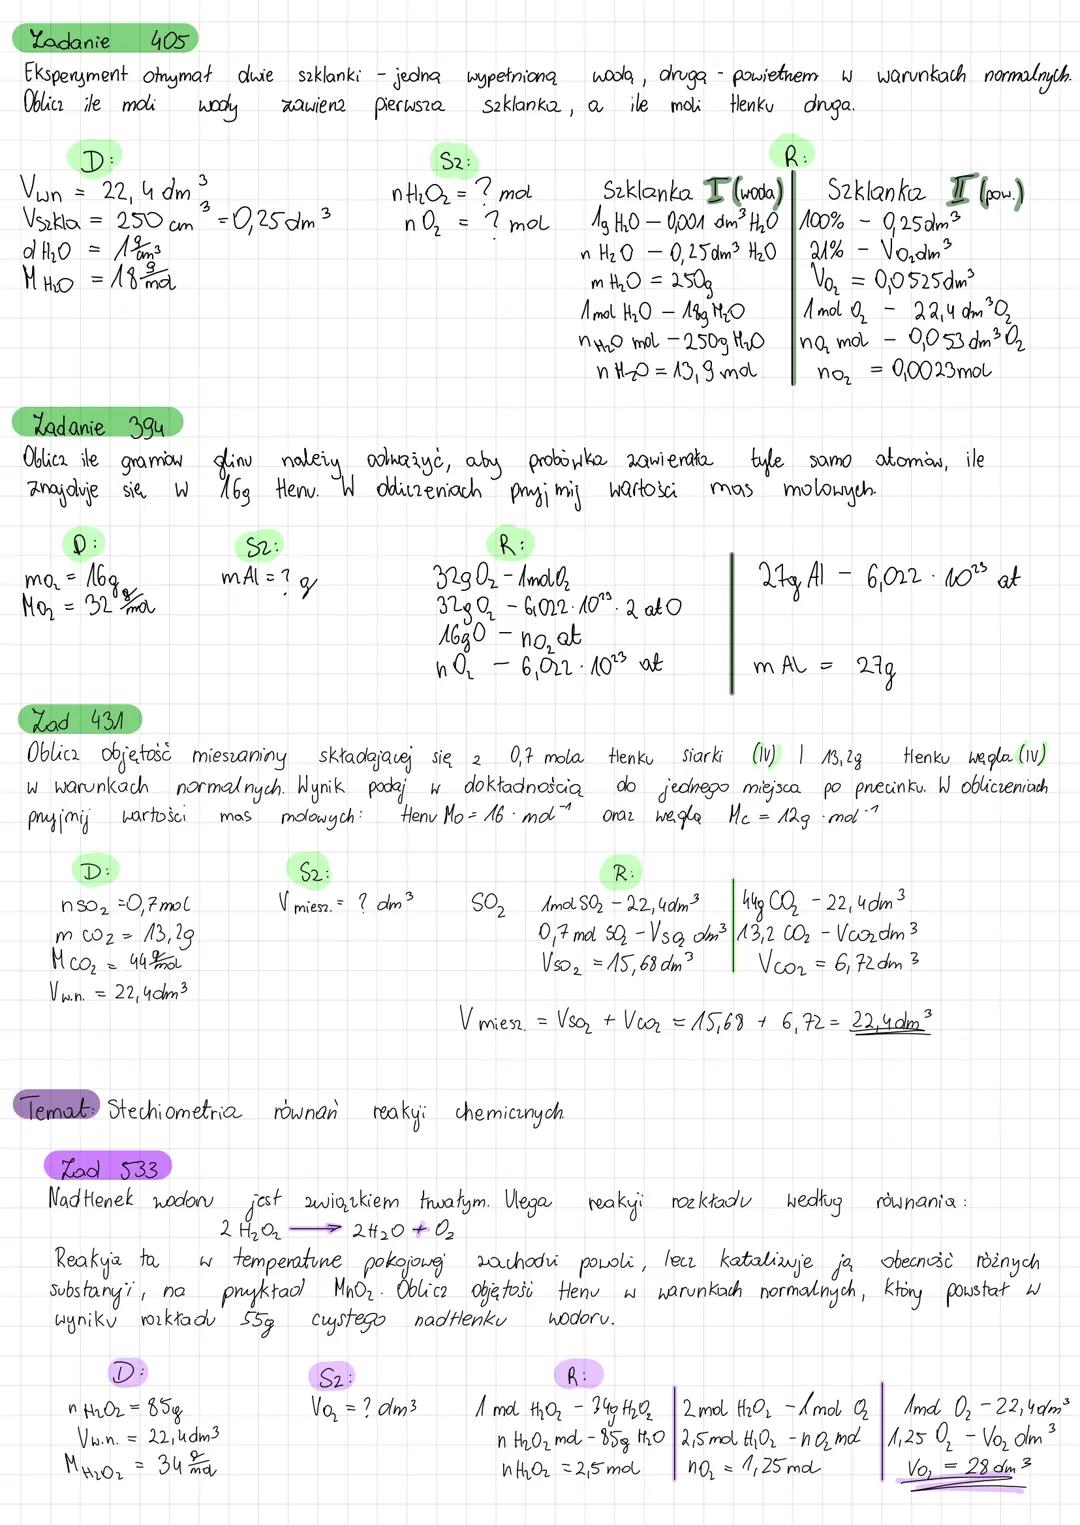 Zadanie 405
Eksperyment otrzymał dwie szklanki - jedną wypełnioną wodą, drugą - powietrzem w warunkach normalnych.
Oblicz ile moli wody zawiera pierwsza szklanka, a ile moli tlenku druga.
D:
Vwn = 22,4 dm³
Vszkla = 250 cm³ = 0,25 dm³
dH₂O = 1 g/cm³
MH₂O = 18 g/mol
Sz:
nH₂O₂ = ? mol
nO₂ = ? mol
R:
Szklanka I (woda)
1g H₂O - 0,001 dm³ H₂O
n H₂O - 0,25dm³ H₂O
m H₂O = 250g
1 mol H₂O - 18g H₂O
nH₂O mol - 250g H₂O
n H₂O = 13,9 mol
Szklanka II (pow.)
100% - 0,25dm³
21% - VO₂dm³
VO₂ = 0,0525dm³
1 mol O₂ - 22,4 dm³O₂
nO₂ mol - 0,053 dm³O₂
nO₂ = 0,0023mol
Zadanie 394
Oblicz ile gramów glinu należy odważyć, aby probówka zawierała tyle samo atomów, ile
znajduje się w 16g tlenu. W obliczeniach przyjmij wartości mas molowych.
D:
mO₂ = 16g
MO₂ = 32 g/mol
Sz:
mAl = ? g
R:
32g O₂ - 1mol O₂
32g O₂ - 6,022·10²³·2 at O
16g O - nO₂ at
n O₂ - 6,022·10²³ at
27g Al - 6,022·10²³ at
m Al = 27g
Zad 431
Oblicz objętość mieszaniny składającej się z 0,7 mola tlenku siarki (IV) I 13,2g tlenku węgla (IV)
w warunkach normalnych. Wynik podaj w dokładnością do jednego miejsca po przecinku. W obliczeniach
przyjmij wartości mas molowych: tlenu Mo = 16·mol⁻¹ oraz węgla Mc = 12g·mol⁻¹
D:
nSO₂ = 0,7mol
m CO₂ = 13,2g
MCO₂ = 44 g/mol
Vw.n. = 22,4dm³
Sz:
V miesz. = ? dm³
R:
SO₂ 1mol SO₂ - 22,4dm³
0,7 mol SO₂ - VSO₂ dm³
VSO₂ = 15,68dm³
44g CO₂ - 22,4dm³
13,2 CO₂ - VCO₂dm³
VCO₂ = 6,72dm³
V miesz. = VSO₂ + VCO₂ = 15,68 + 6,72 = 22,4dm³
Temat: Stechiometria równań reakcji chemicznych
Zad 533
Nadtlenek wodoru jest związkiem trwałym. Ulega reakcji rozkładu według równania:
2 H₂O₂ ⟶ 2H₂O + O₂
Reakcja ta w temperaturze pokojowej zachodzi powoli, lecz katalizuje ją obecność różnych
substancji, na przykład MnO₂. Oblicz objętość tlenu w warunkach normalnych, który powstał w
wyniku rozkładu 55g czystego nadtlenku wodoru.
D:
n H₂O₂ = 85g
Vw.n. = 22,4dm³
MH₂O₂ = 34 g/mol
Sz:
VO₂ = ? dm³
R:
1 mol H₂O₂ - 34g H₂O₂
n H₂O₂ mol - 85g H₂O
nH₂O₂ = 2,5mol
2 mol H₂O₂ - 1 mol O₂
2,5mol H₂O₂ - nO₂ mol
nO₂ = 1,25mol
1mol O₂ - 22,4dm³
1,25 O₂ - VO₂ dm³
VO₂ = 28 dm³